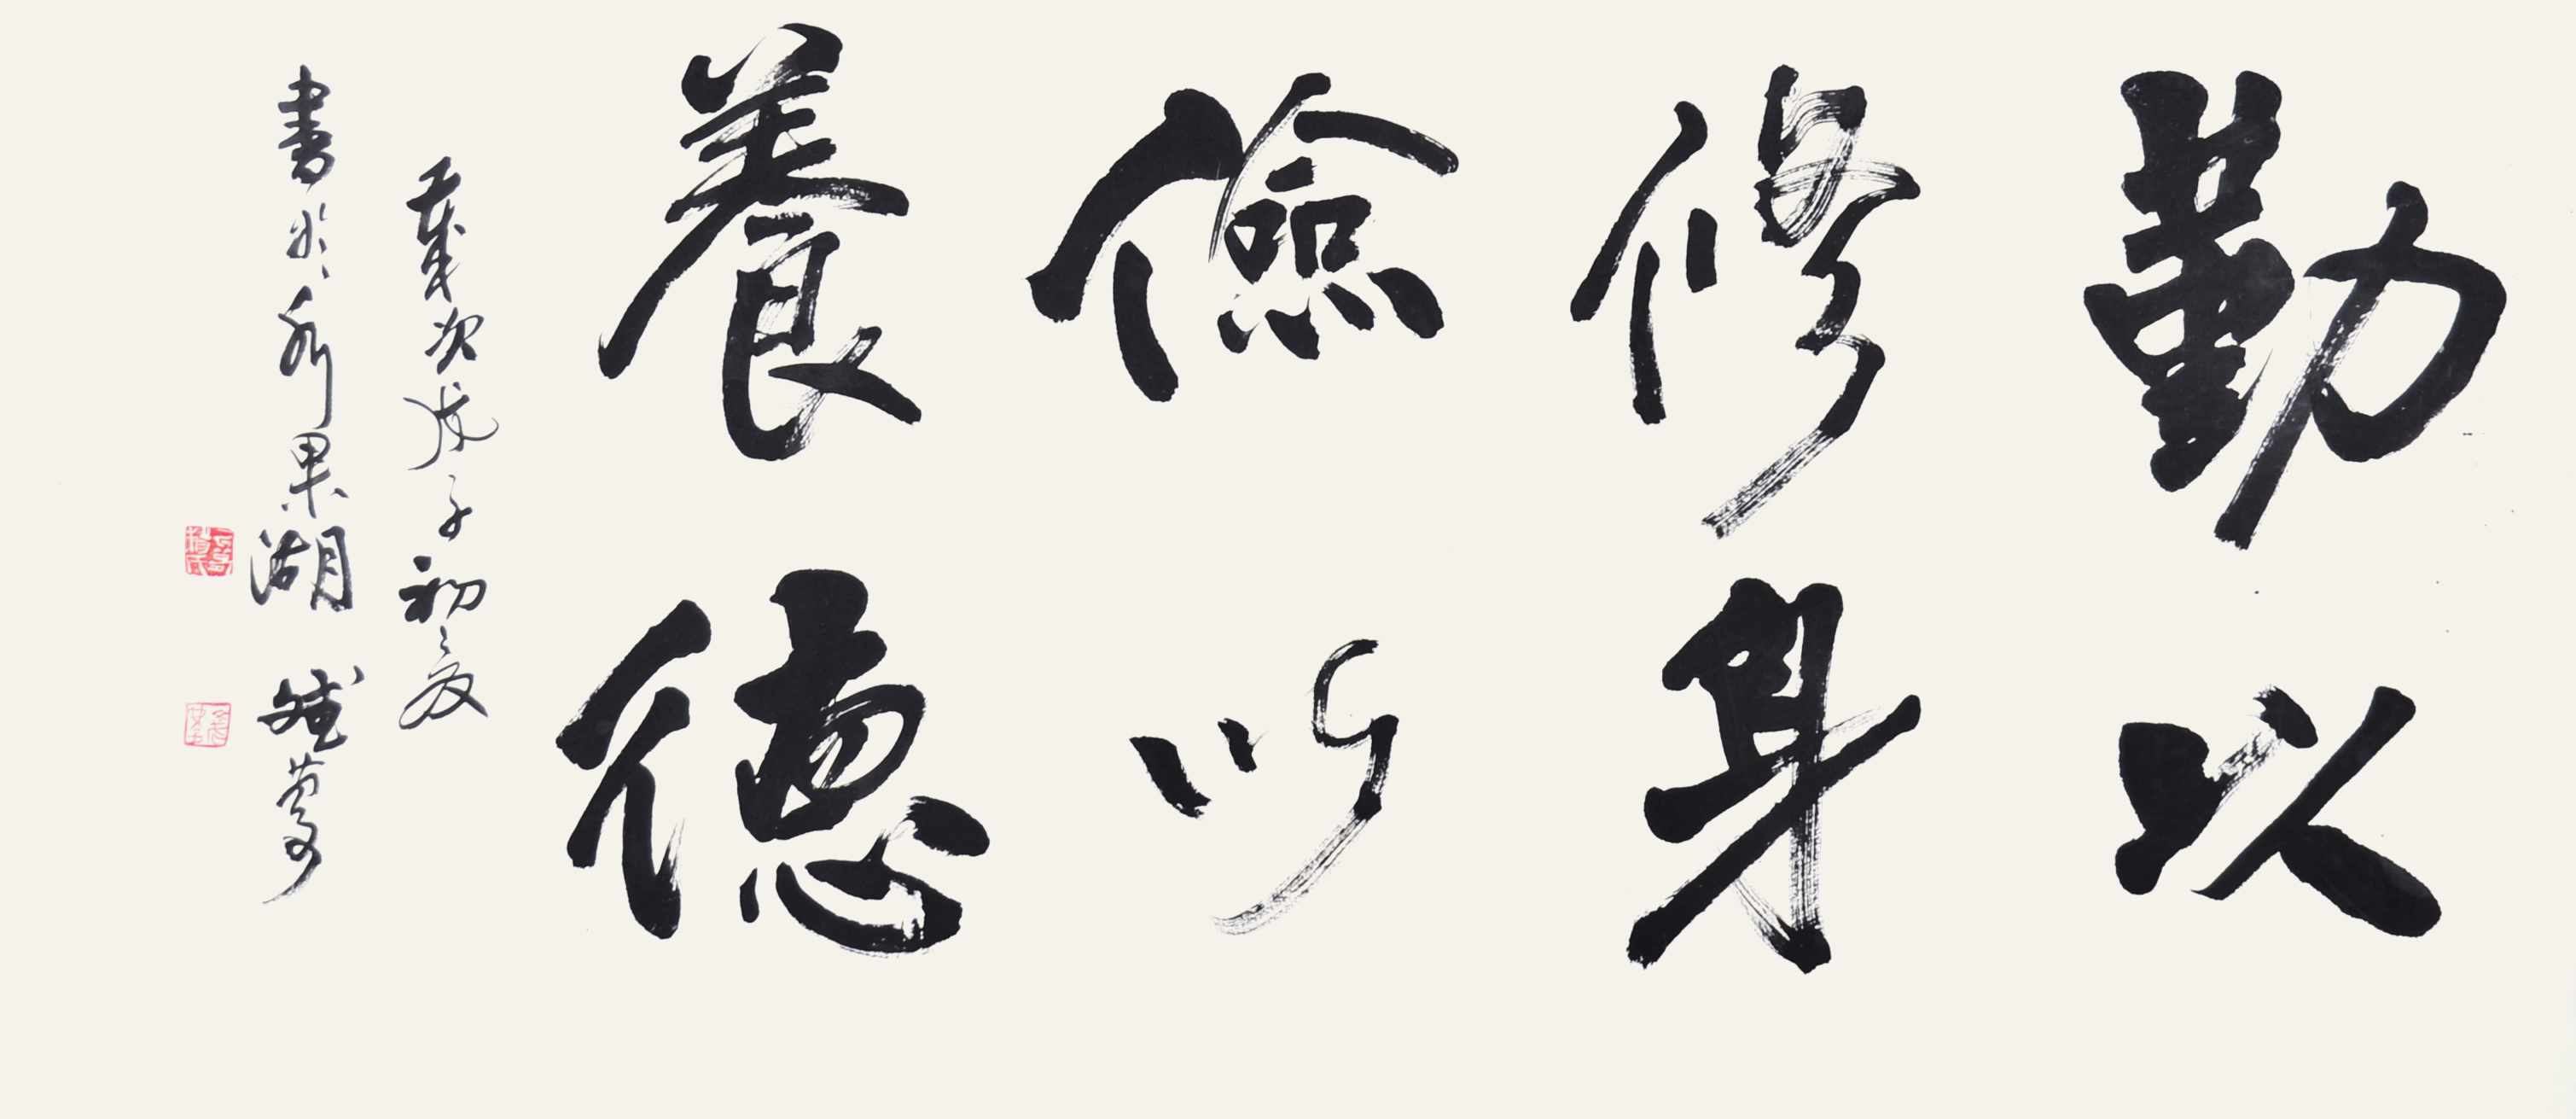 勤以
修身
儉以
養德
歲次戊子初夏
書於水果湖 斌夢